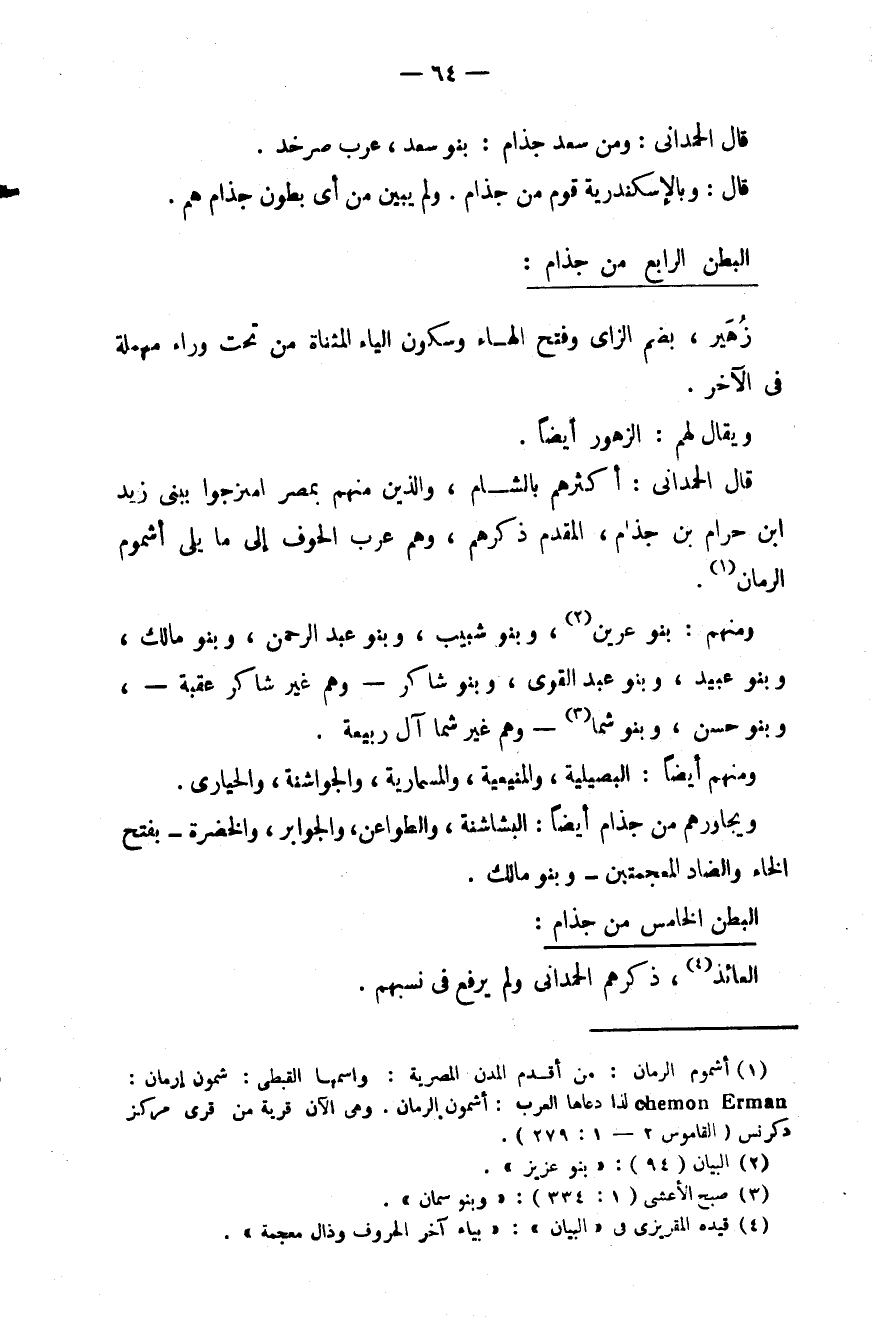 — ٦٤ —
قال الحمدانى : ومن سعد جذام : بنو سعد ، عرب صرخد .
قال : وبالإسكندرية قوم من جذام . ولم يبين من أى بطون جذام هم .
البطن الرابع من جذام :
زُهَير ، بضم الزاى وفتح الهـاء وسكون الياء المثناة من تحت وراء مهملة
فى الآخر .
ويقال لهم : الزهور أيضاً .
قال الحمدانى : أكثرهم بالشـام ، والذين منهم بمصر امتزجوا ببنى زيد
ابن حرام بن جذام ، المقدم ذكرهم ، وهم عرب الحوف إلى ما يلى أشموم
الرمان(١) .
ومنهم : بنو عرين(٢) ، وبنو شبيب ، وبنو عبد الرحمن ، وبنو مالك ،
وبنو عبيد ، وبنو عبد القوى ، وبنو شاكر — وهم غير شاكر عقبة — ،
وبنو حسن ، وبنو شما(٣) — وهم غير شما آل ربيعة .
ومنهم أيضاً : البصيلية ، والمنيعية ، والمسمارية ، والجواشنة ، والحيارى .
ويجاورهم من جذام أيضاً : البشاشنة ، والطواعن، والجوابر ، والخضرة – بفتح
الخاء والضاد المعجمتين – وبنو مالك .
البطن الخامس من جذام :
العائذ(٤) ، ذكرهم الحمدانى ولم يرفع فى نسبهم .
(١) أشموم الرمان : من أقـدم المدن المصرية : واسمهـا القبطى : شمون إرمان :
chemon Erman لذا دعاها العرب : أشمون الرمان . وهى الآن قرية من قرى مركز
دكرنس ( القاموس ٢ — ١ : ٢٧٩ ) .
(٢) البيان ( ٩٤ ) : « بنو عزيز » .
(٣) صبح الأعشى ( ١ : ٣٣٤ ) : « وبنو سمان » .
(٤) قيده المقريزى فى « البيان » : « بياء آخر الحروف وذال معجمة » .